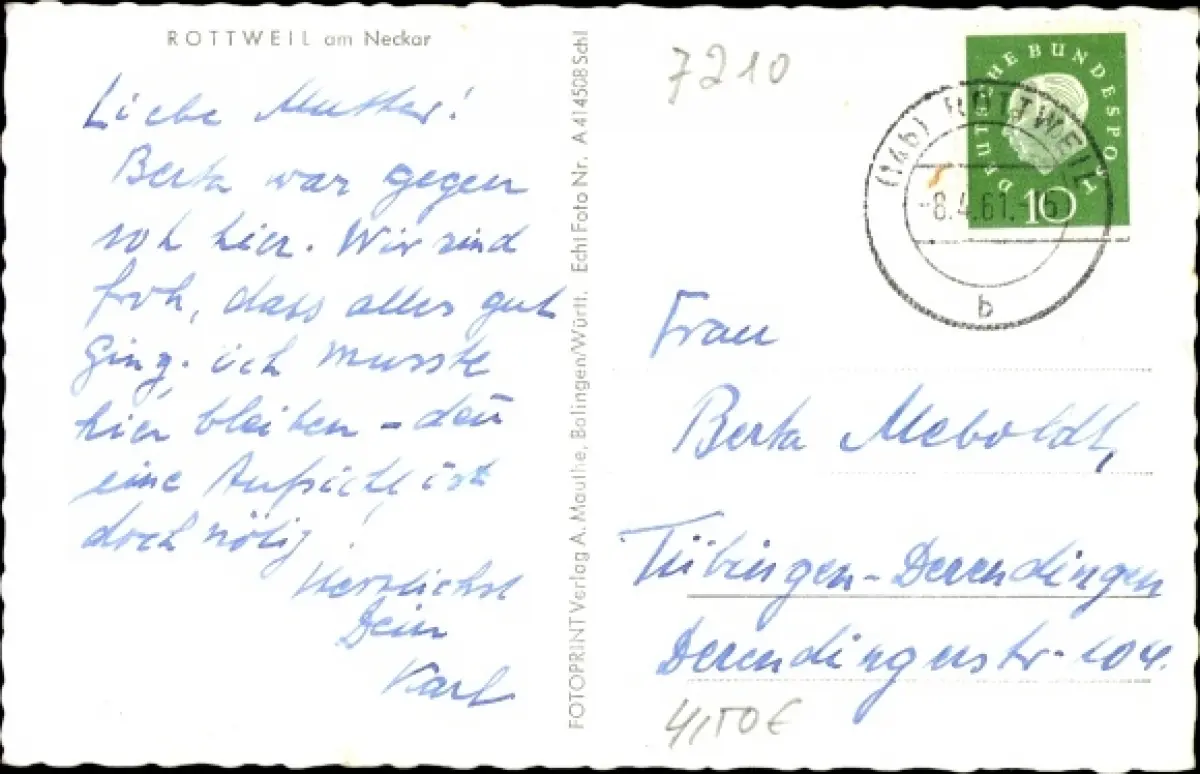 ROTTWEIL am Neckar
Liebe Mutter!
Berta war gegen
hier. Wir sind
froh, dass alles gut
Ging. ich musste
hier bleiben – den̄
eine Aufsicht ist
doch nötig!
Herzlichst
Dein
Karl
FOTOPRINT Verlag A. Mauthe, Balingen/Württ. Echt Foto Nr. A 414508 Schl
7210
DEUTSCHE BUNDESPOST
10
(14b) ROTTWEIL
-8.4.61.-15
b
Frau
Berta Meboldt,
Tübingen-Derendingen
Derendingerstr. 104.
4,50€